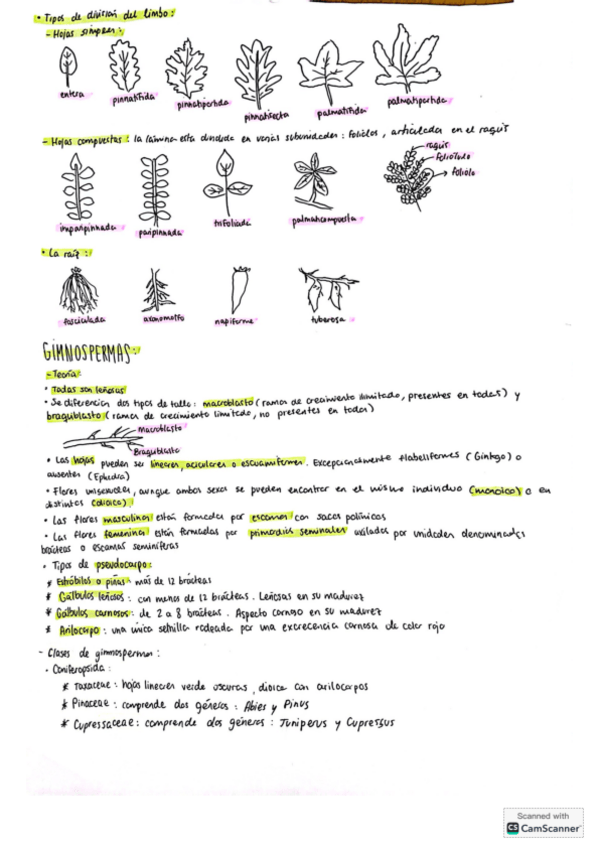 • Tipos de división del limbo:
- Hojas simples:
entera
pinnatifida
pinnatipartida
pinnatisecta
palmatifida
palmatipartida
- Hojas compuestas: la lámina esta dividida en varias subunidades: foliolos, articulada en el raquis
raquis
foliolulo
foliolo
imparipinnada
paripinnada
trifoliada
palmaticompuesta
• La raíz:
fasciculada
axonomorfo
napiforme
tuberosa
GIMNOSPERMAS:
- Teoría:
• Todas son leñosas
• Se diferencian dos tipos de tallo: macroblasto (ramas de crecimiento ilimitado, presentes en todas) y
braquiblasto (ramas de crecimiento limitado, no presentes en todas)
Macroblasto
Braquiblasto
• Las hojas pueden ser lineares, aciculares o escuamiformes. Excepcionalmente flabeliformes (Ginkgo) o
ausentes (Ephedra)
• Flores unisexuales, aunque ambos sexos se pueden encontrar en el mismo individuo (monoico) o en
distintos (dioico)
• Las flores masculinas están formadas por escamas con sacos polínicos
• Las flores femeninas están formadas por primordios seminales axilados por unidades denominadas
brácteas o escamas seminíferas
• Tipos de pseudocarpo:
* Estróbilos o piñas: más de 12 brácteas
* Gálbulos leñosos: con menos de 12 brácteas. Leñosas en su madurez
* Gálbulos carnosos: de 2 a 8 brácteas. Aspecto carnoso en su madurez
* Arilocarpo: una única semilla rodeada por una excrecencia carnosa de color rojo
- Clases de gimnospermas:
• Coniferopsida:
* Taxaceae: hojas lineares verde oscuras, dioica con arilocarpos
* Pinaceae: comprende dos géneros: Abies y Pinus
* Cupressaceae: comprende dos géneros: Juniperus y Cupressus
Scanned with
CS CamScanner